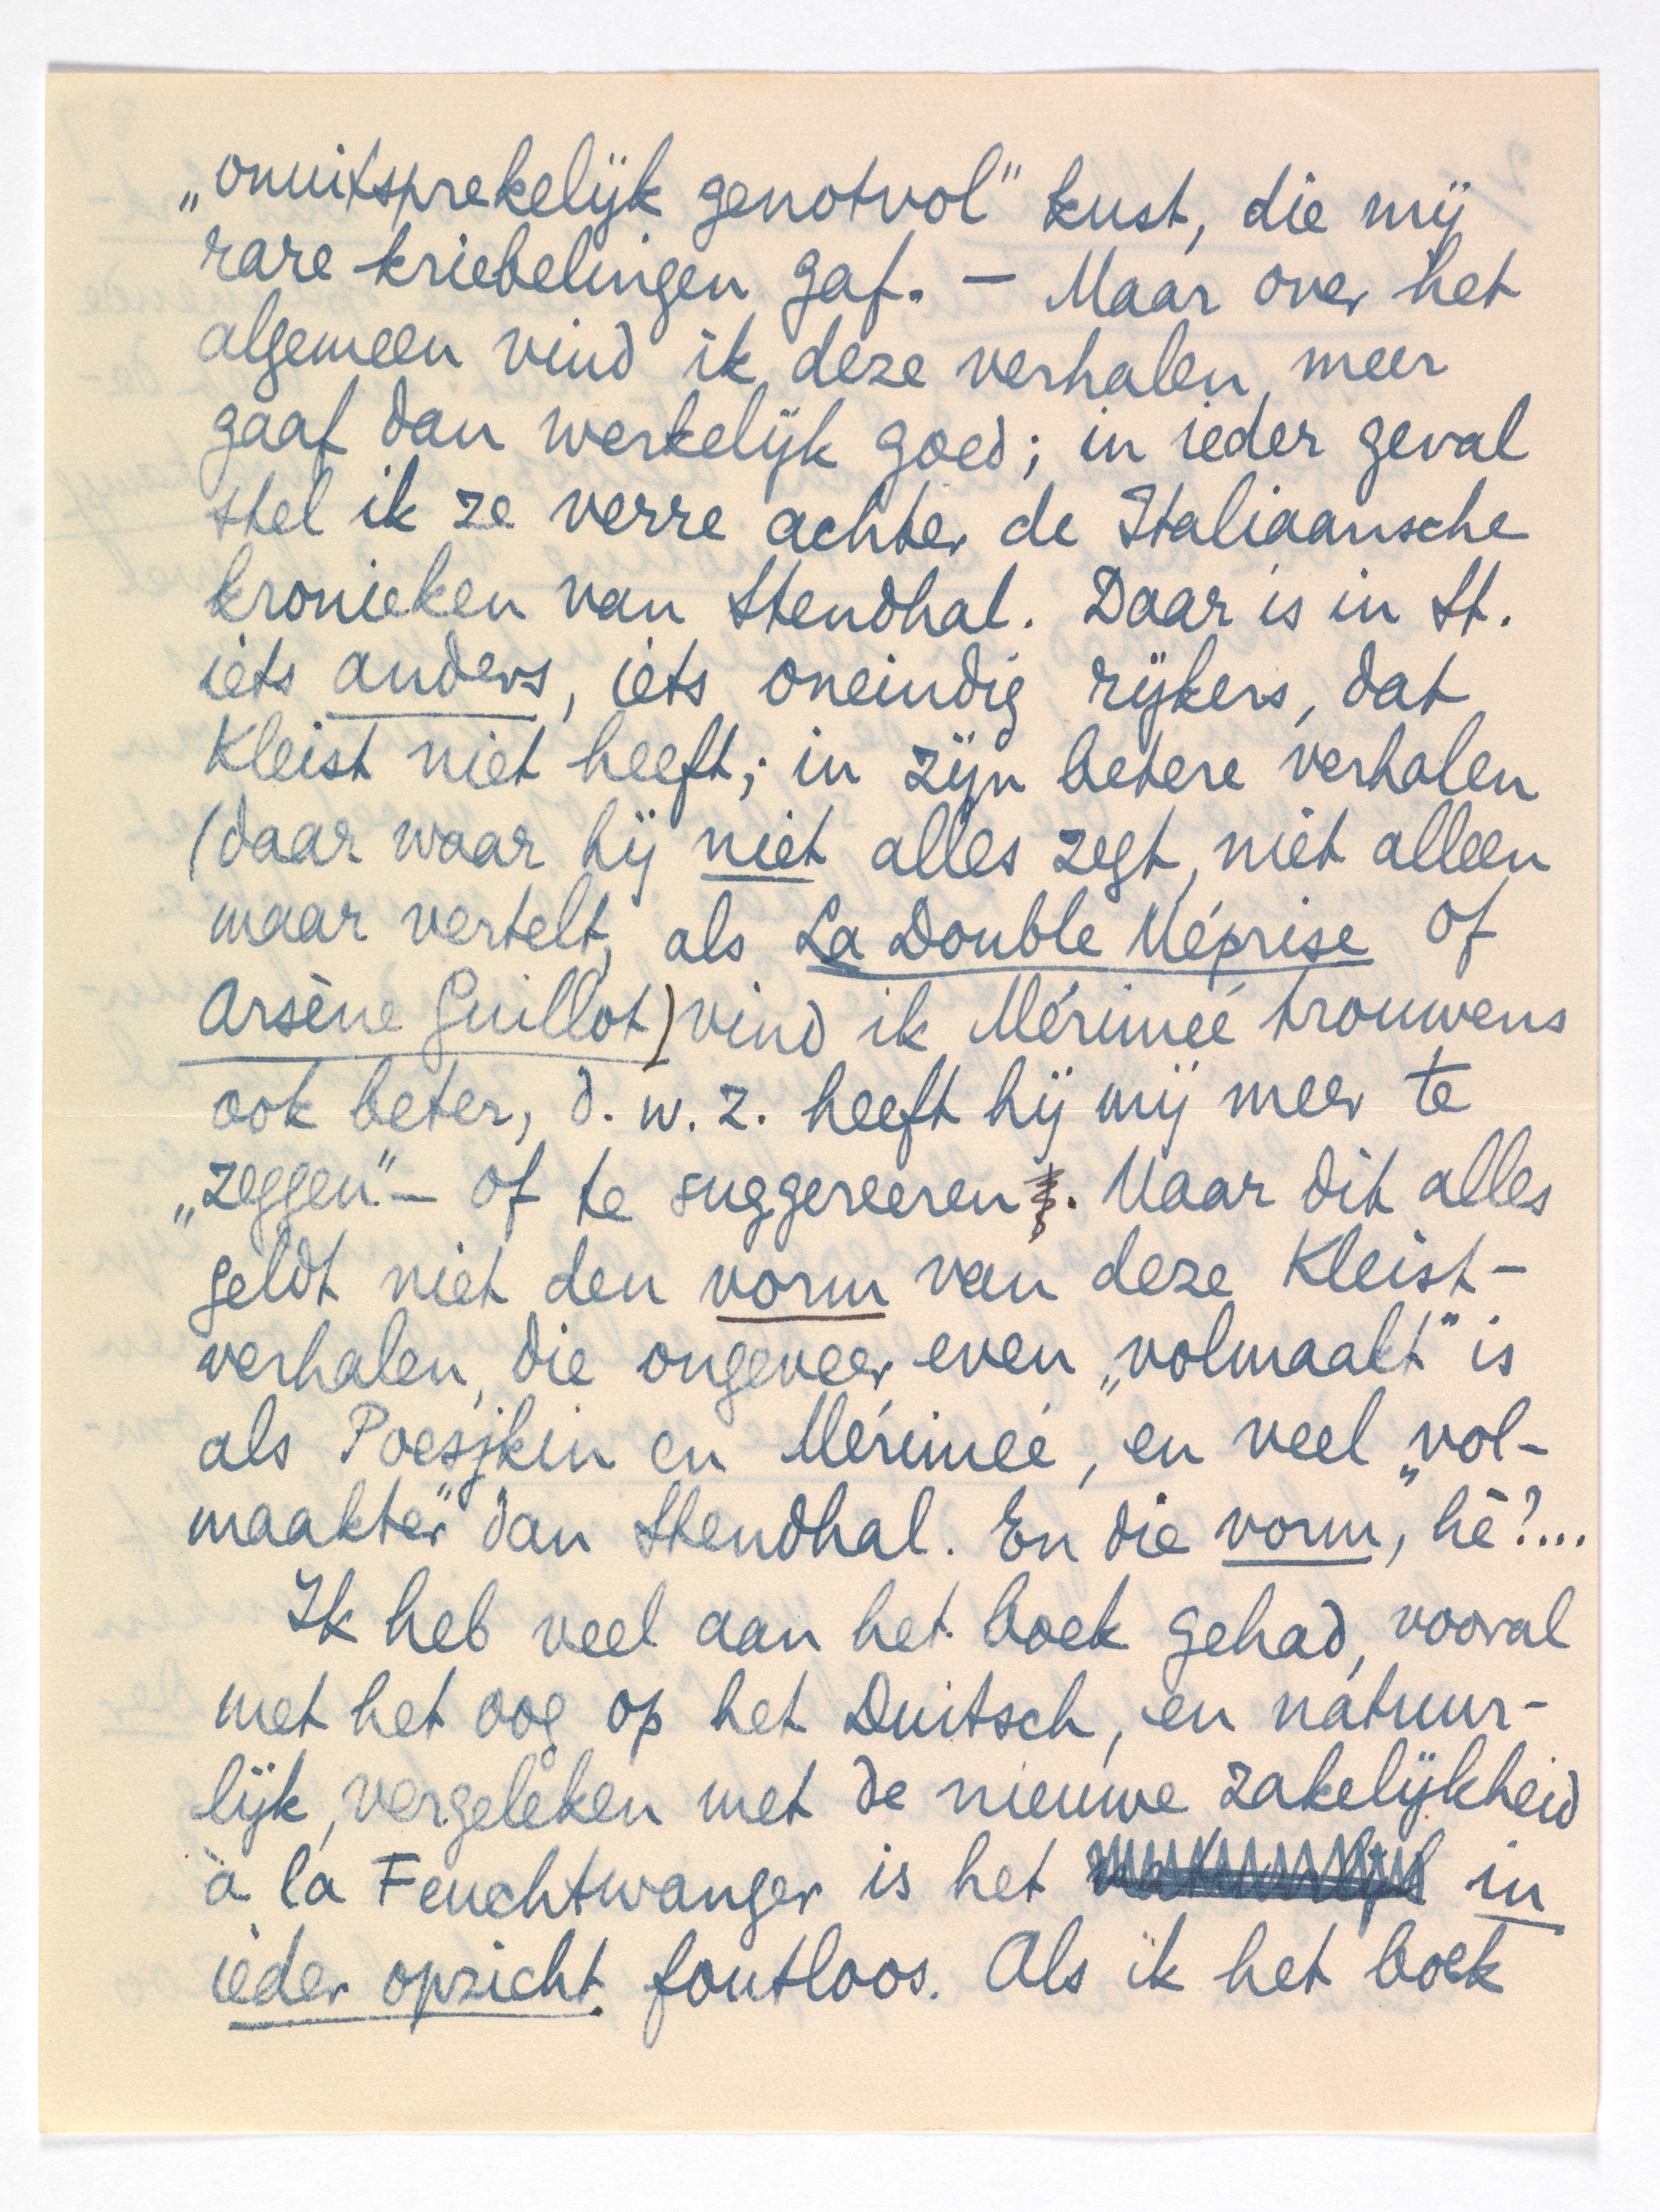 „onuitsprekelijk genotvol" kust, die mij
rare kriebelingen gaf. — Maar over het
algemeen vind ik deze verhalen meer
gaaf dan werkelijk goed; in ieder geval
stel ik ze verre achter de Italiaansche
kronieken van Stendhal. Daar is in St.
iets anders, iets oneindig rijkers, dat
Kleist niet heeft; in zijn betere verhalen
(daar waar hij niet alles zegt, niet alleen
maar vertelt, als La Double Méprise of
Arsène Guillot) vind ik Mérimée trouwens
ook beter, d.w.z. heeft hij mij meer te
„zeggen" — of te suggereeren. Maar dit alles
geldt niet den vorm van deze Kleist-
verhalen, die ongeveer even „volmaakt" is
als Poesjkin en Mérimée, en veel „vol-
maakter" dan Stendhal. En die vorm, hè?...
Ik heb veel aan het boek gehad, vooral
met het oog op het Duitsch, en natuur-
lijk, vergeleken met de nieuwe zakelijkheid
à la Feuchtwanger is het in
ieder opzicht foutloos. Als ik het boek